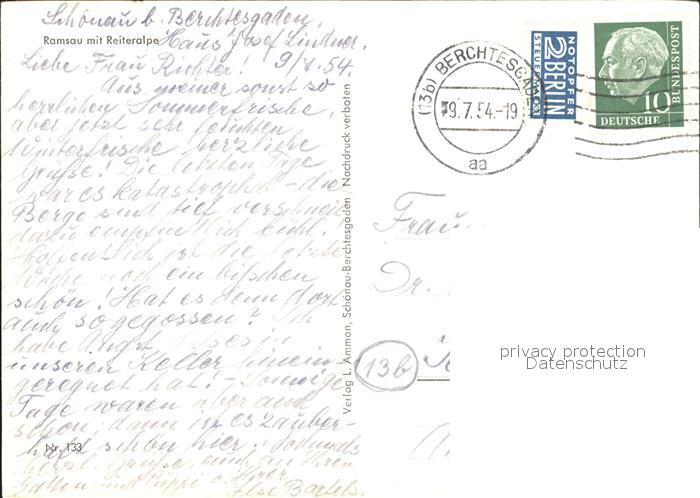 Schönau b. Berchtesgaden,
Ramsau mit Reiteralpe Haus Josef Lindner.
Liebe Frau Richter! 9/7. 54.
Aus meiner sonst so
herrlichen Sommerfrische,
aber jetzt sehr feuchten
Winterfrische herzliche
Grüße! Die letzten Tage
war es katastrophal - die
Berge sind tief verschneit
dazu empfindlich kühl.
Hoffentlich ist die letzte
Woche noch ein bißchen
schön! Hat es denn dort
auch so gegossen? Ich
habe Angst, daß es in
unseren Keller hinein-
geregnet hat! - Sonnige
Tage waren aber auch
schön; dann ist es zauber-
haft schön hier. Nochmals
Nr. 133
herzl. Grüße, auch an Ihren
Gatten und Puppi v. Ihrer
Else Bartels.
Verlag L. Ammon, Schönau-Berchtesgaden / Nachdruck verboten
(13b) BERCHTESGADEN
9.7.54.-19
aa
NOTOPFER
2 BERLIN
STEUERMARKE
DEUTSCHE
BUNDESPOST
10
Frau
Dr.
13b
privacy protection
Datenschutz